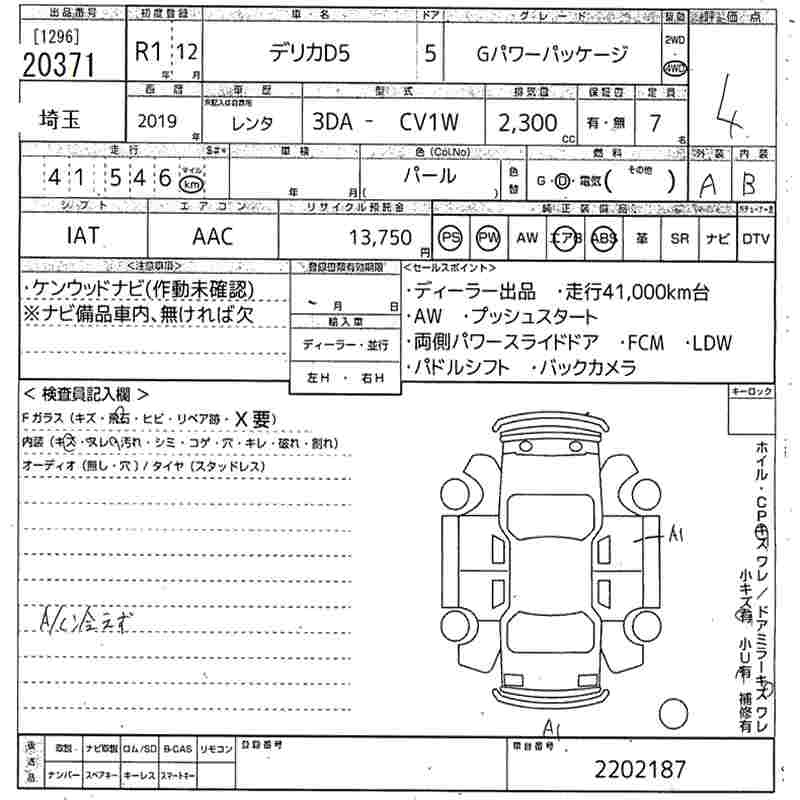 出品番号 初度登録 車・名 ドア グレード 駆動 評価点
[1296]
20371 R1 12 デリカD5 5 Gパワーパッケージ 2WD 4WD
年 月
4
西暦 車歴 型式 排気量 保証書 定員
埼玉 2019 年 レンタ 3DA - CV1W 2,300 CC 有・無 7 名
走行 車検 色(Col.No) 燃料 外装 内装
41 546 マイル km 年 月( パール ) 色替 G・D・電気( その他 ) A B
シフト エアコン リサイクル預託金 純正装備品
IAT AAC 13,750 円 PS PW AW エアB ABS 革 SR ナビ DTV
<注意事項>
・ケンウッドナビ(作動未確認)
※ナビ備品車内、無ければ欠
登録書類有効期限
月 日
輸入車
ディーラー・並行
左H・右H
<セールスポイント>
・ディーラー出品 ・走行41,000km台
・AW ・プッシュスタート
・両側パワースライドドア ・FCM ・LDW
・パドルシフト ・バックカメラ
< 検査員記入欄 >
Fガラス(キズ・飛石・ヒビ・リペア跡・X要)
内装(キズ・スレ・汚れ・シミ・コゲ・穴・キレ・破れ・割れ)
オーディオ(無し・穴)/タイヤ(スタッドレス)
A/C冷えず
キーロック
A1
A1
ホイル・CPキズ ワレ/ドアミラーキズ ワレ
小キズ有 小U有 補修有
後送品 取説 ナビ取説 ロム/SD B-CAS リモコン
ナンバー スペアキー キーレス スマートキー
登録番号
車台番号
2202187